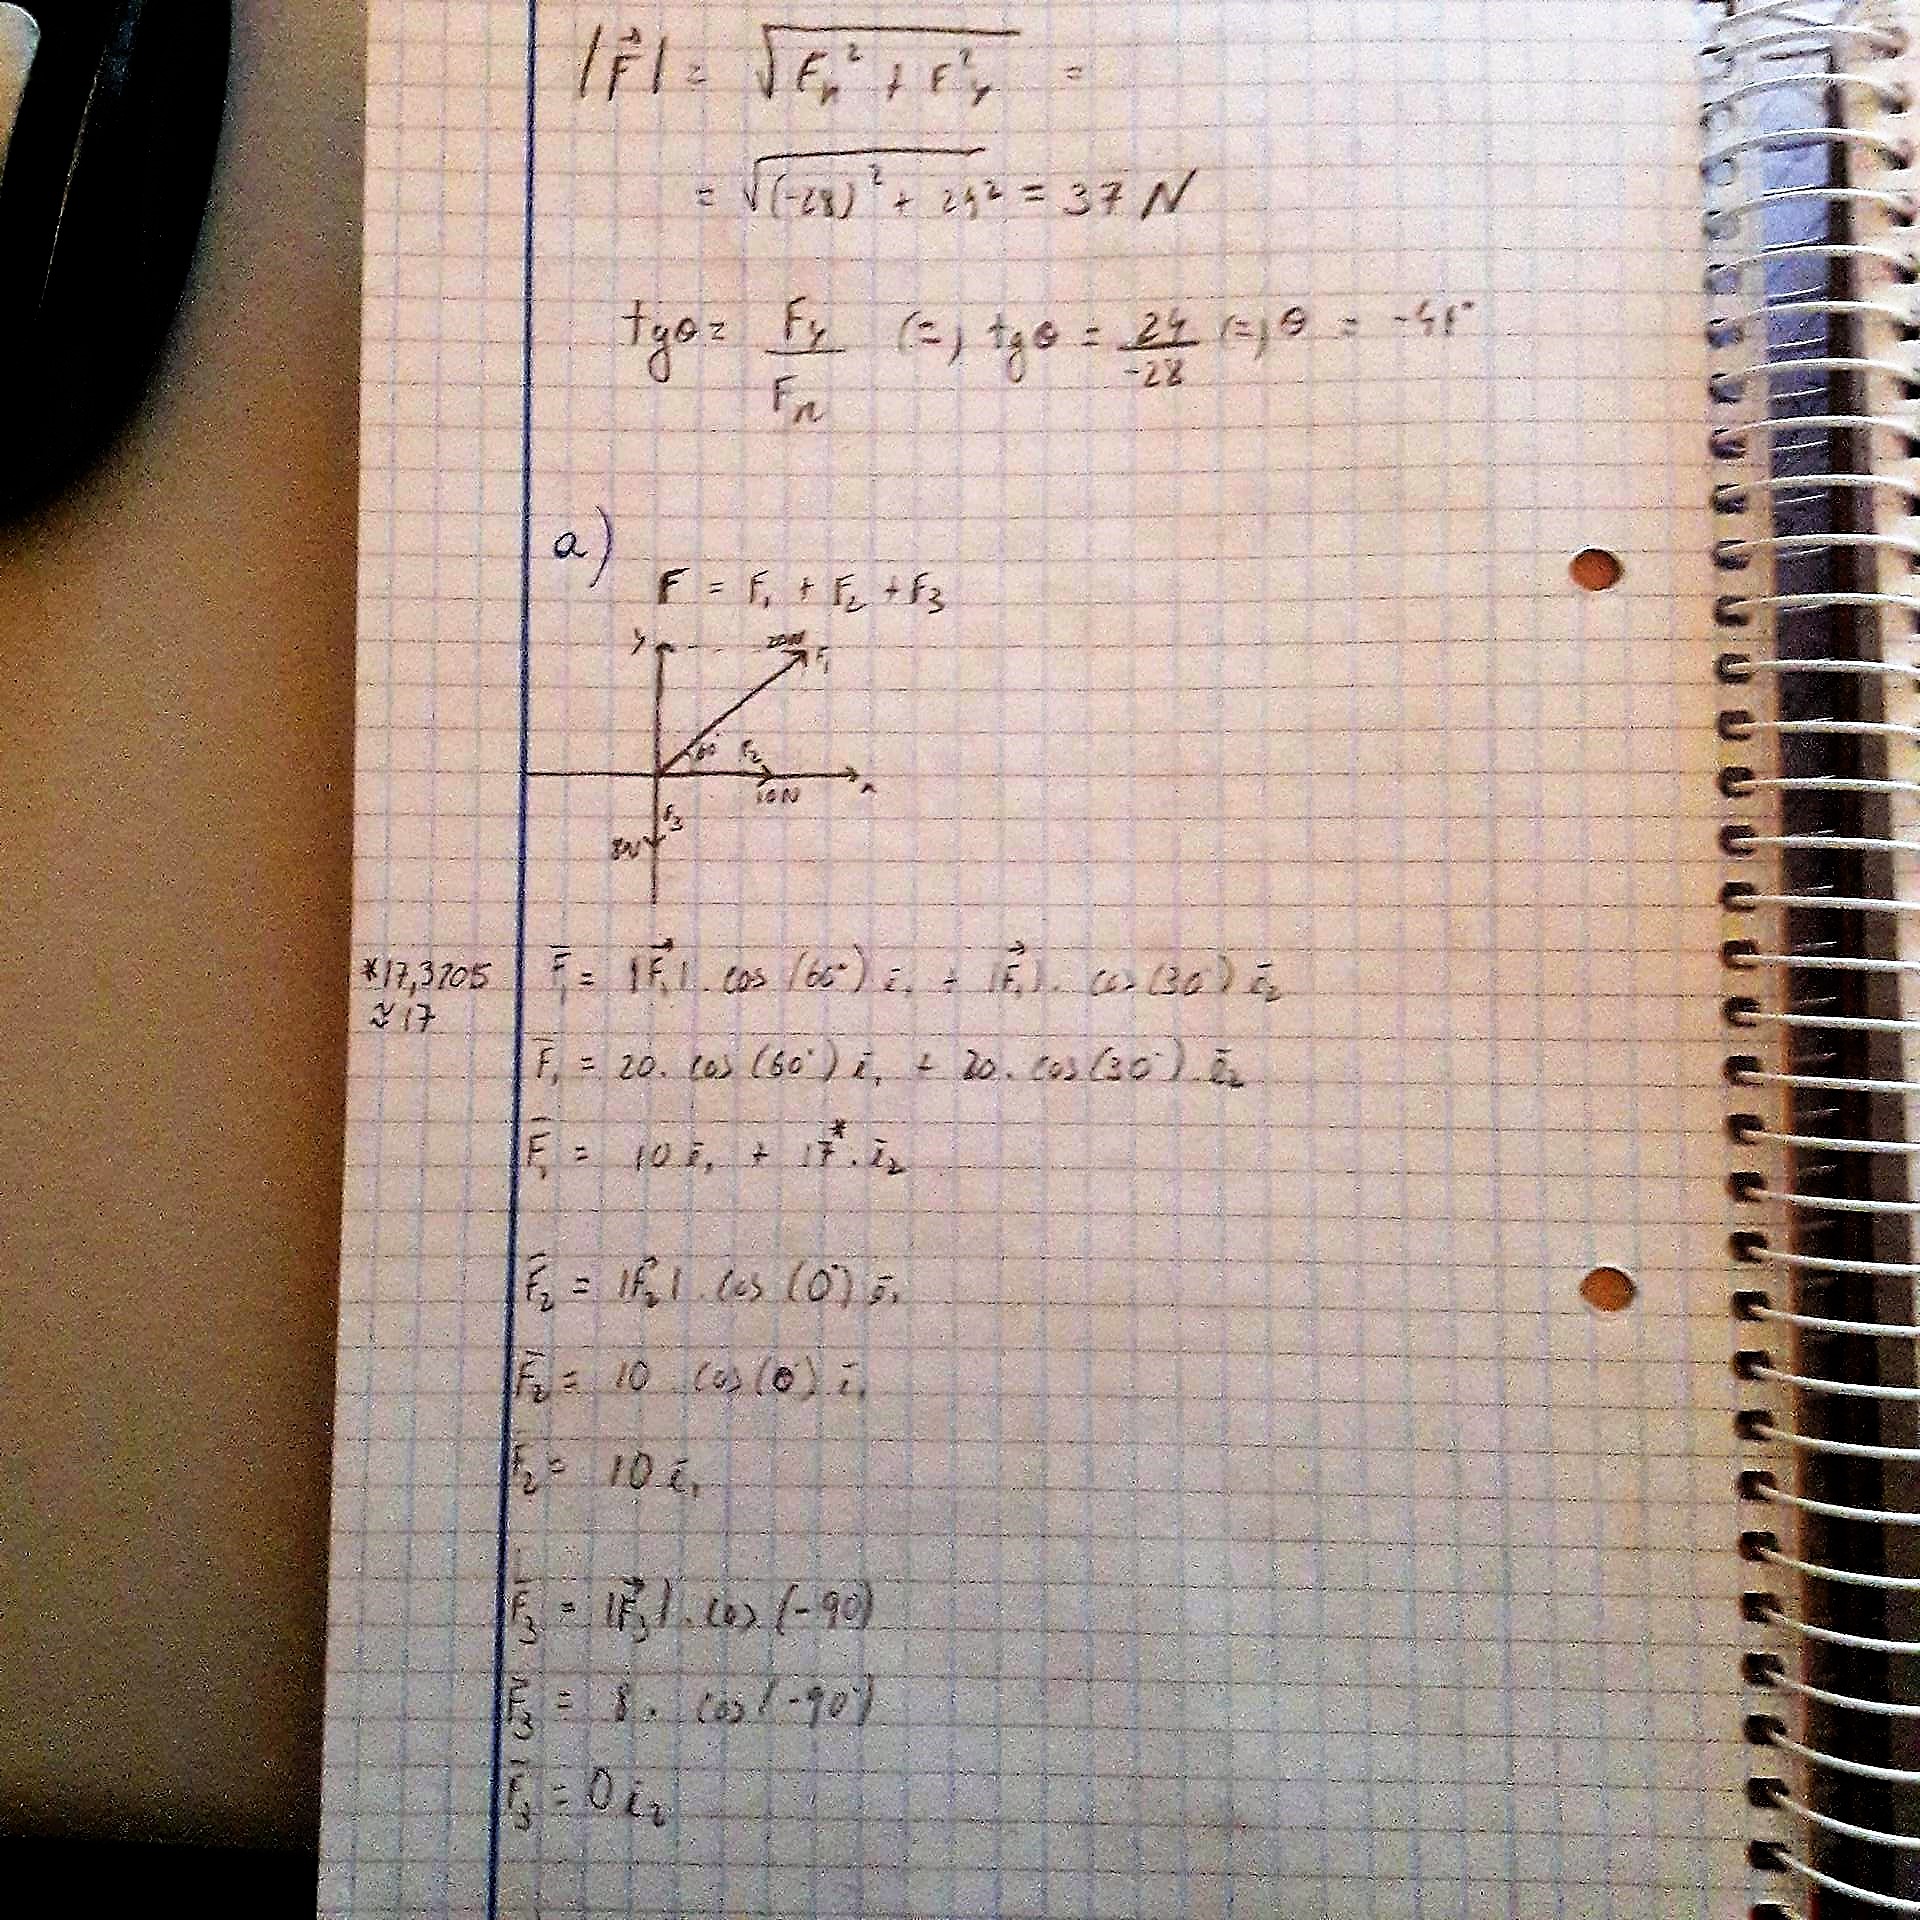 |F⃗| = √(Fₓ² + F²ᵧ) =
= √((-28)² + 24²) = 37 N
tgθ = Fᵧ/Fₓ (=) tgθ = 24/-28 (=) θ =
a)
F = F₁ + F₂ + F₃
y 20N F₁
60° F₂
10N x
F₃
8N
*17,3205
≈ 17
F̄₁ = |F⃗₁| . cos (60°) ē₁ + |F⃗₁| . cos (30°) ē₂
F̄₁ = 20 . cos (60°) ē₁ + 20 . cos (30°) . ē₂
F̄₁ = 10 ē₁ + 17* . ē₂
F̄₂ = |F⃗₂| . cos (0°) ē₁
F̄₂ = 10 cos (0) ē₁
F₂ = 10 ē₁
F̄₃ = |F⃗₃| . cos (-90)
F̄₃ = 8 . cos (-90°)
F̄₃ = 0 ē₂